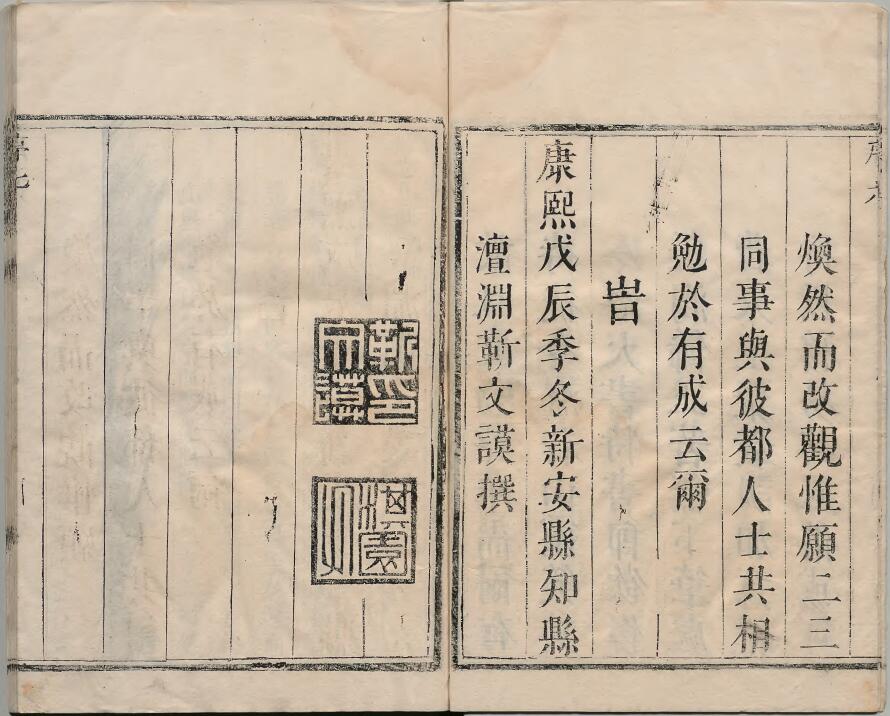 序六
煥然而改觀惟願二三
同事與彼都人士共相
勉於有成云爾
旹
康熙戊辰季冬新安縣知縣
澶淵靳文謨撰
靳印
文謨
序七